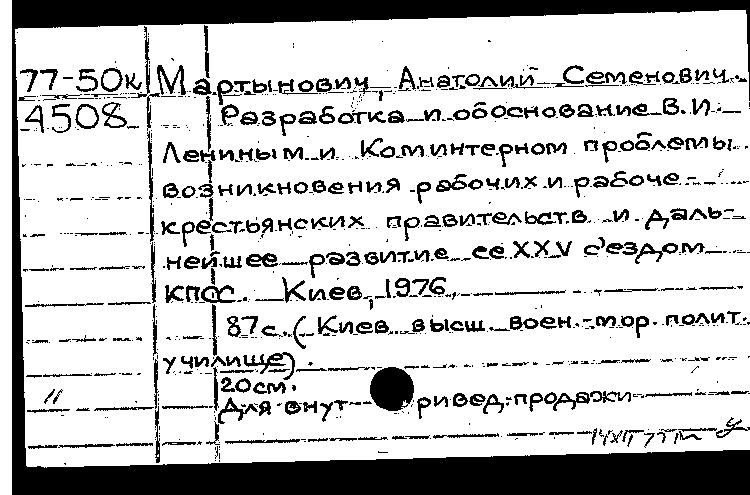 77-50к Мартынович, Анатолий Семенович.
4508 Разработка и обоснование В.И.
Лениным и Коминтерном проблемы
возникновения рабочих и рабоче-
крестьянских правительств и даль-
нейшее развитие ее XXV с'ездом
КПСС. Киев, 1976.
87с. (Киев. высш. воен.-мор. полит.
училище).
20см.
Для внут ривед. продажи